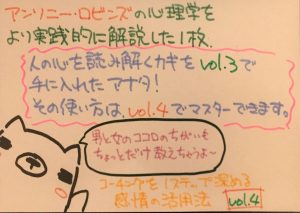 アンソニー・ロビンズの心理学を
より実践的に解説した1枚.
人の心を読み解くカギをvol.3で
手に入れたアナタ!
その使い方は、vol.4でマスターできます。
男と女のココロのちがいも
ちょっとだけ教えちゃうよ~
コーチングを1ステップ深める
感情の活用法
vol.4